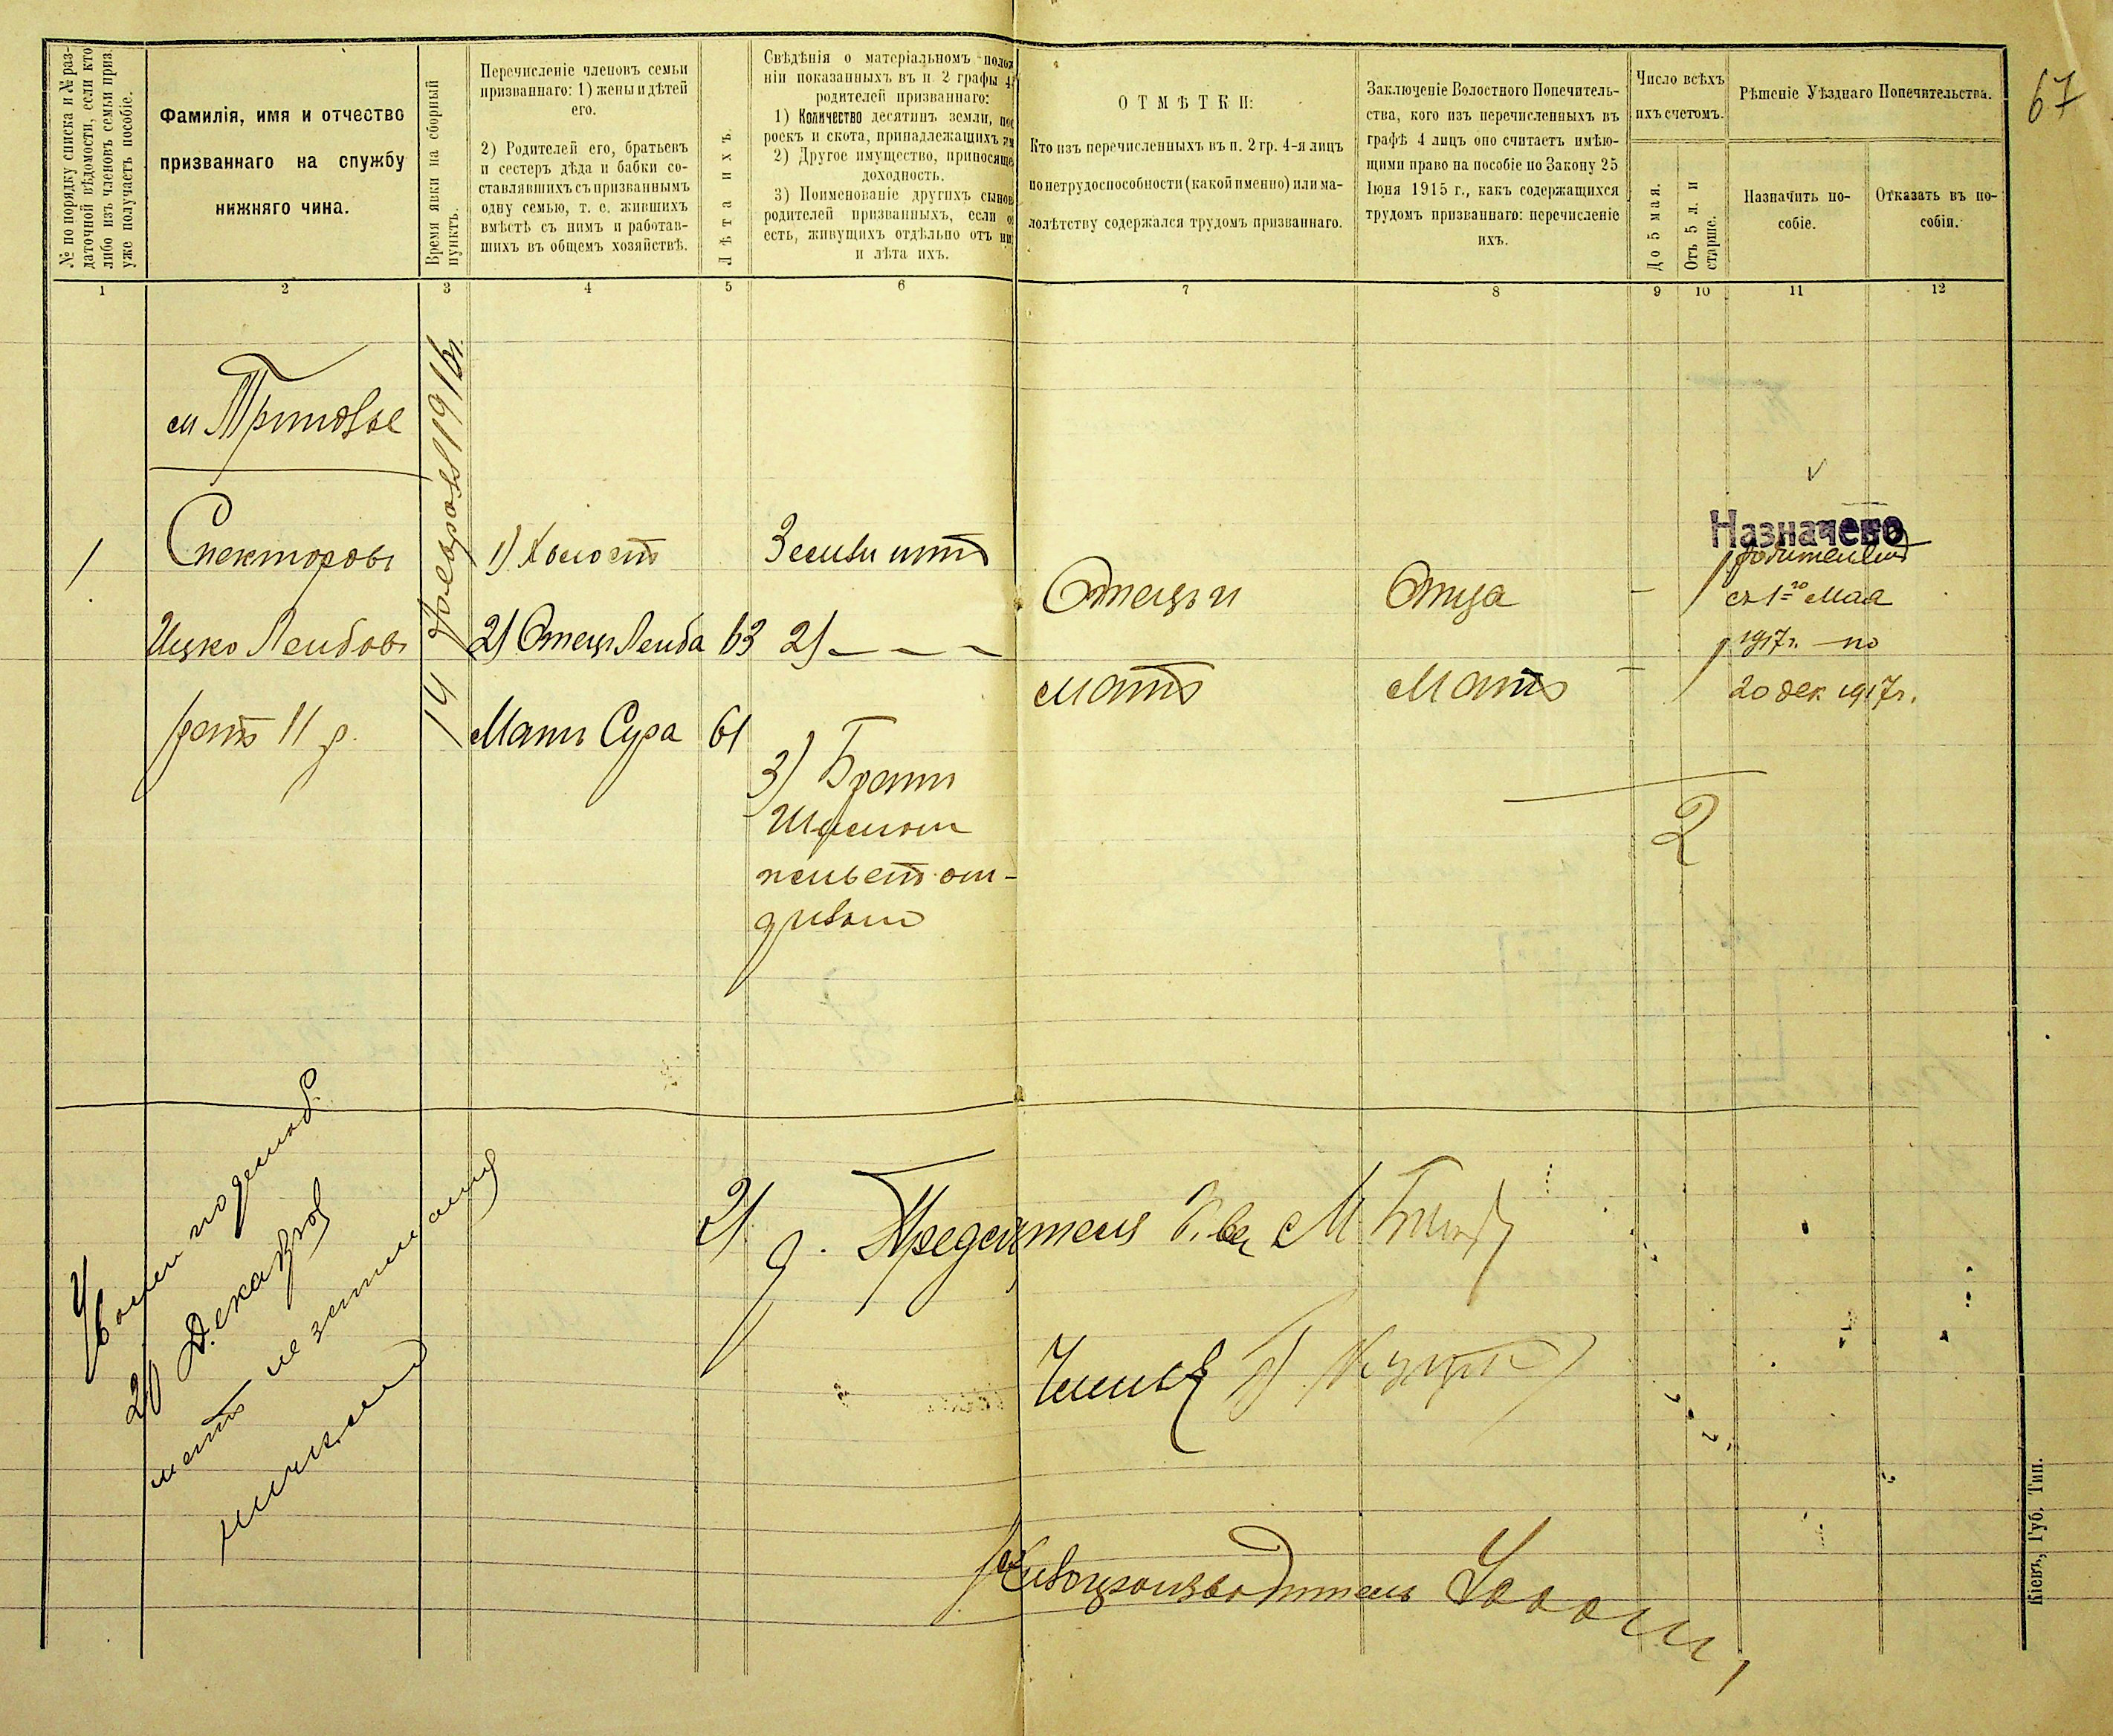 67
№ по порядку списка и № раз-
даточной вѣдомости, если кто
либо изъ членовъ семьи приз.
уже получаетъ пособіе.
Фамилія, имя и отчество
призваннаго на службу
нижняго чина.
Время явки на сборный
пунктъ.
Перечисленіе членовъ семьи
призваннаго: 1) жены и дѣтей
его.
2) Родителей его, братьевъ
и сестеръ дѣда и бабки со-
ставлявшихъ съ призваннымъ
одну семью, т. е. жившихъ
вмѣстѣ съ нимъ и работав-
шихъ въ общемъ хозяйствѣ.
Лѣта ихъ.
Свѣдѣнія о матеріальномъ полож
ніи показанныхъ въ п. 2 графы 4
родителей призваннаго:
1) Количество десятинъ земли, пос
роекъ и скота, принадлежащихъ им
2) Другое имущество, приносяще
доходность.
3) Поименованіе другихъ сынов
родителей призванныхъ, если о
есть, живущихъ отдѣльно отъ ни
и лѣта ихъ.
ОТМѢТКИ:
Кто изъ перечисленныхъ въ п. 2 гр. 4-я лицъ
по нетрудоспособности (какой именно) или ма-
лолѣтству содержался трудомъ призваннаго.
Заключеніе Волостного Попечитель-
ства, кого изъ перечисленныхъ въ
графѣ 4 лицъ оно считаетъ имѣю-
щими право на пособіе по Закону 25
Іюня 1915 г., какъ содержащихся
трудомъ призваннаго: перечисленіе
ихъ.
Число всѣхъ
ихъ счетомъ.
До 5 мая.
Отъ 5 л. и
старше.
Рѣшеніе Уѣзднаго Попечительства.
Назначить по-
собіе.
Отказать въ по-
собіи.
1 2 3 4 5 6 7 8 9 10 11 12
1
Спекторовъ
Ицко Лейбовъ
рат 11 р.
14 1916г.
1) Холостъ
2) Отецъ Лейба 63
Мать Сура 61
Земли нѣтъ
2) – – –
3) Братъ
живетъ от-
Отецъ и
мать
Отца
Мать
– 1
– 1
2
Назначено
родителямъ
съ 1го мая
1917г. по
20 дек 1917г.
20 Декабря
2) Председатель
Членъ
Делопроизводитель
Кіевъ, Губ. Тип.